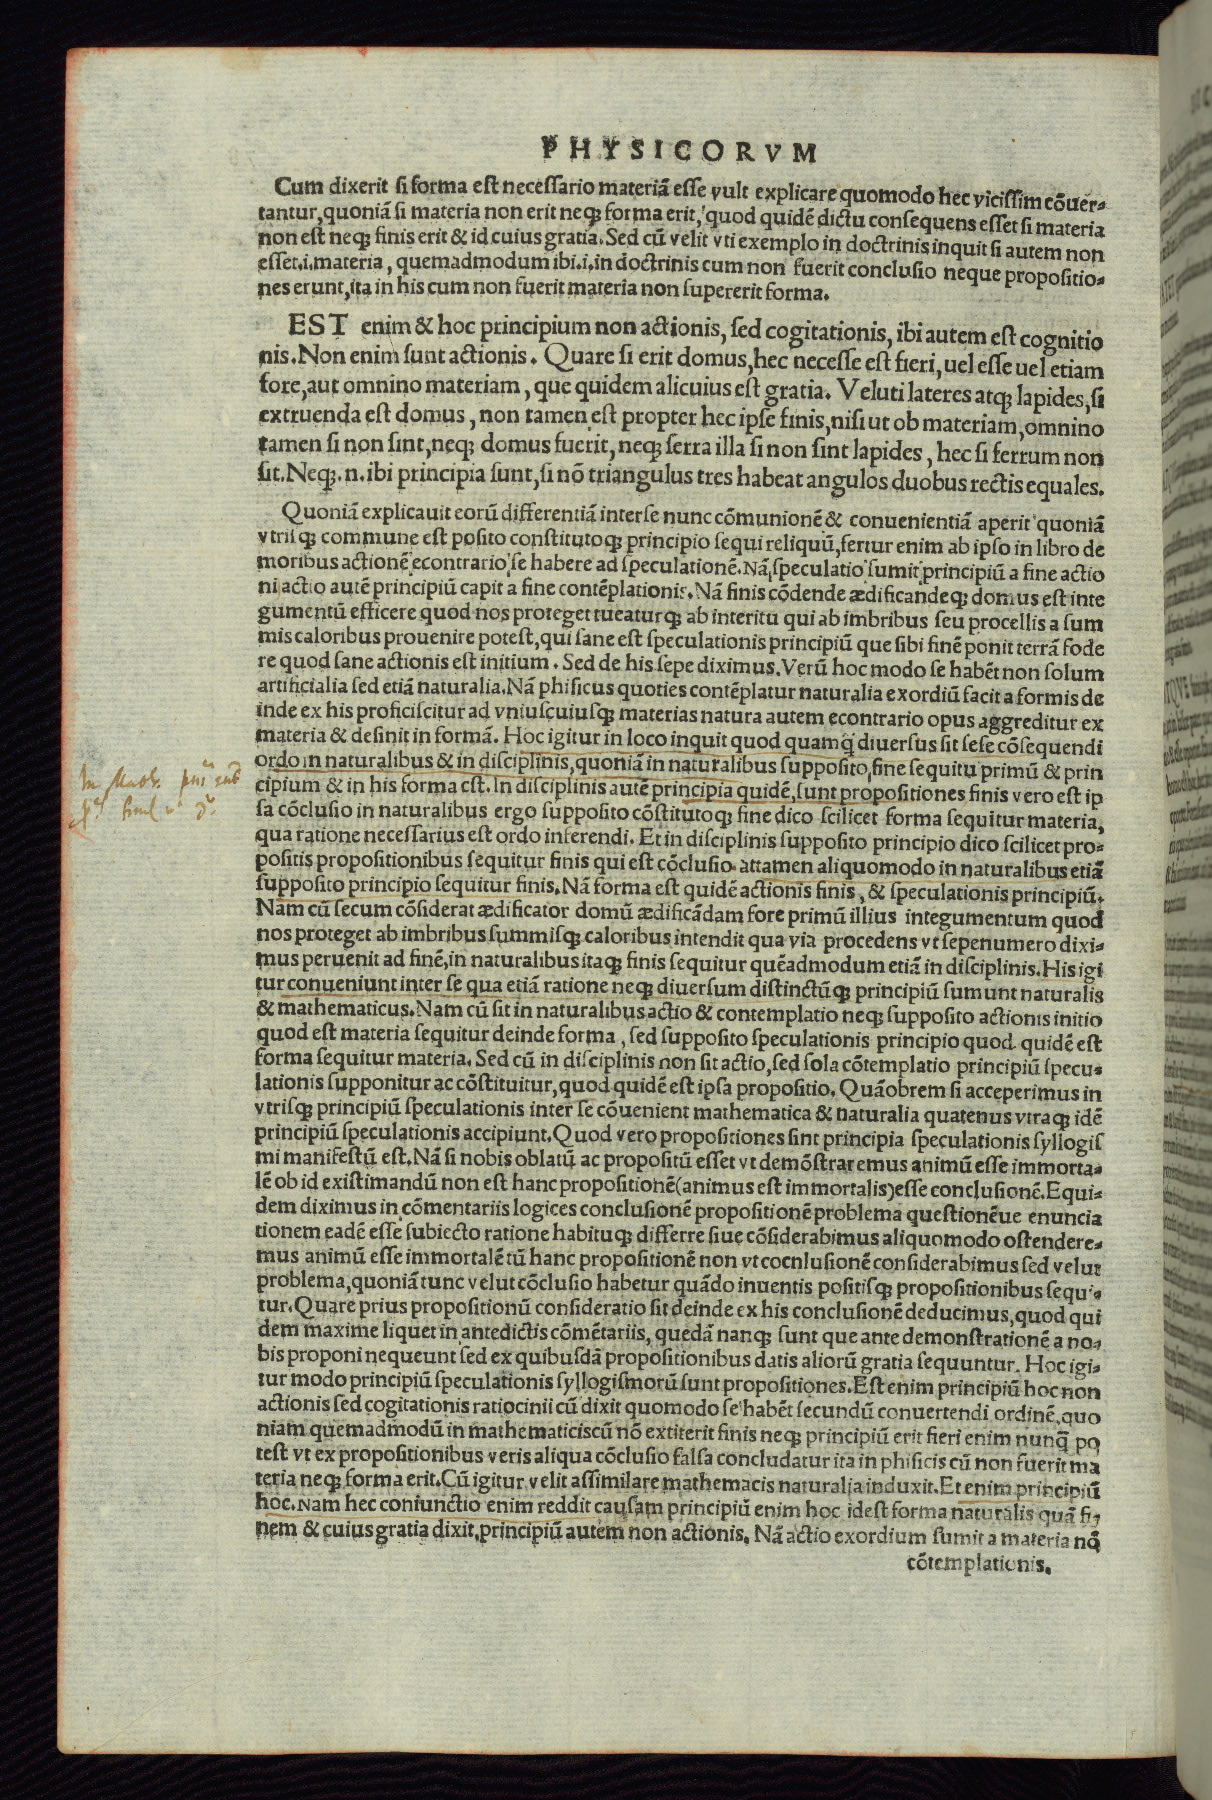 PHYSICORVM
Cum dixerit si forma est necessario materiā esse vult explicare quomodo hec vicissim cōuer-
tantur, quoniā si materia non erit neqꝫ forma erit, quod quidē dictu consequens esset si materia
non est neqꝫ finis erit & id cuius gratia. Sed cū velit vti exemplo in doctrinis inquit si autem non
esset.i.materia, quemadmodum ibi.i.in doctrinis cum non fuerit conclusio neque propositio-
nes erunt, ita in his cum non fuerit materia non supererit forma.
EST enim & hoc principium non actionis, sed cogitationis, ibi autem est cognitio
nis. Non enim sunt actionis. Quare si erit domus, hec necesse est fieri, uel esse uel etiam
fore, aut omnino materiam, que quidem alicuius est gratia. Veluti lateres atqꝫ lapides, si
extruenda est domus, non tamen est propter hec ipse finis, nisi ut ob materiam, omnino
tamen si non sint, neqꝫ domus fuerit, neqꝫ serra illa si non sint lapides, hec si ferrum non
sit. Neqꝫ.n.ibi principia sunt, si nō triangulus tres habeat angulos duobus rectis equales.
Quoniā explicauit eorū differentiā inter se nunc cōmunionē & conuenientiā aperit quoniā
vtrisqꝫ commune est posito constitutoqꝫ principio sequi reliquū, fertur enim ab ipso in libro de
moribus actionē econtrario se habere ad speculationē. Nā speculatio sumit principiū a fine actio
ni actio autē principiū capit a fine contēplationis. Nā finis cōdende ædificandeqꝫ domus est inte
gumentū efficere quod nos proteget tueaturqꝫ ab interitu qui ab imbribus seu procellis a sum
mis caloribus prouenire potest, qui sane est speculationis principiū que sibi finē ponit terrā fode
re quod sane actionis est initium. Sed de his sepe diximus. Verū hoc modo se habēt non solum
artificialia sed etiā naturalia. Nā phisicus quoties contēplatur naturalia exordiū facit a formis de
inde ex his proficiscitur ad vniuscuiusqꝫ materias natura autem econtrario opus aggreditur ex
materia & desinit in formā. Hoc igitur in loco inquit quod quamq̄ diuersus sit sese cōsequendi
ordo in naturalibus & in disciplinis, quoniā in naturalibus supposito, fine sequitu primū & prin
cipium & in his forma est. In disciplinis autē principia quidē, sunt propositiones finis vero est ip
sa cōclusio in naturalibus ergo supposito cōstitutoqꝫ fine dico scilicet forma sequitur materia,
qua ratione necessarius est ordo inferendi. Et in disciplinis supposito principio dico scilicet pro-
positis propositionibus sequitur finis qui est cōclusio attamen aliquomodo in naturalibus etiā
supposito principio sequitur finis. Nā forma est quidē actionis finis, & speculationis principiū.
Nam cū secum cōsiderat ædificator domū ædificādam fore primū illius integumentum quod
nos proteget ab imbribus summisqꝫ caloribus intendit qua via procedens vt sepenumero dixi-
mus peruenit ad finē, in naturalibus itaqꝫ finis sequitur quēadmodum etiā in disciplinis. His igi
tur conueniunt inter se qua etiā ratione neqꝫ diuersum distinctūqꝫ principiū sumunt naturalis
& mathematicus. Nam cū sit in naturalibus actio & contemplatio neqꝫ supposito actionis initio
quod est materia sequitur deinde forma, sed supposito speculationis principio quod quidē est
forma sequitur materia. Sed cū in disciplinis non sit actio, sed sola cōtemplatio principiū specu-
lationis supponitur ac cōstituitur, quod quidē est ipsa propositio. Quāobrem si acceperimus in
vtrisqꝫ principiū speculationis inter se cōuenient mathematica & naturalia quatenus vtraqꝫ idē
principiū speculationis accipiunt. Quod vero propositiones sint principia speculationis syllogis
mi manifestū est. Nā si nobis oblatū ac propositū esset vt demōstraremus animū esse immorta-
lē ob id existimandū non est hanc propositionē (animus est immortalis) esse conclusionē. Equi-
dem diximus in cōmentariis logices conclusionē propositionē problema questionēue enuncia
tionem eadē esse subiecto ratione habituqꝫ differre siue cōsiderabimus aliquomodo ostendere-
mus animū esse immortalē tū hanc propositionē non vt cocnlusionē considerabimus sed velut
problema, quoniā tunc velut cōclusio habetur quādo inuentis positisqꝫ propositionibus sequi-
tur. Quare prius propositionū consideratio sit deinde ex his conclusionē deducimus, quod qui
dem maxime liquet in antedictis cōmētariis, quedā nanqꝫ sunt que ante demonstrationē a no-
bis proponi nequeunt sed ex quibusdā propositionibus datis aliorū gratia sequuntur. Hoc igi-
tur modo principiū speculationis syllogismorū sunt propositiones. Est enim principiū hoc non
actionis sed cogitationis ratiocinii cū dixit quomodo se habēt secundū conuertendi ordinē, quo
niam quemadmodū in mathematicis cū nō extiterit finis neqꝫ principiū erit fieri enim nunq̄ po
test vt ex propositionibus veris aliqua cōclusio falsa concludatur ita in phisicis cū non fuerit ma
teria neqꝫ forma erit. Cū igitur velit assimilare mathemacis naturalia induxit. Et enim principiū
hoc. Nam hec coniunctio enim reddit causam principiū enim hoc idest forma naturalis quā fi-
nem & cuius gratia dixit, principiū autem non actionis. Nā actio exordium sumit a materia nō
cōtemplationis.